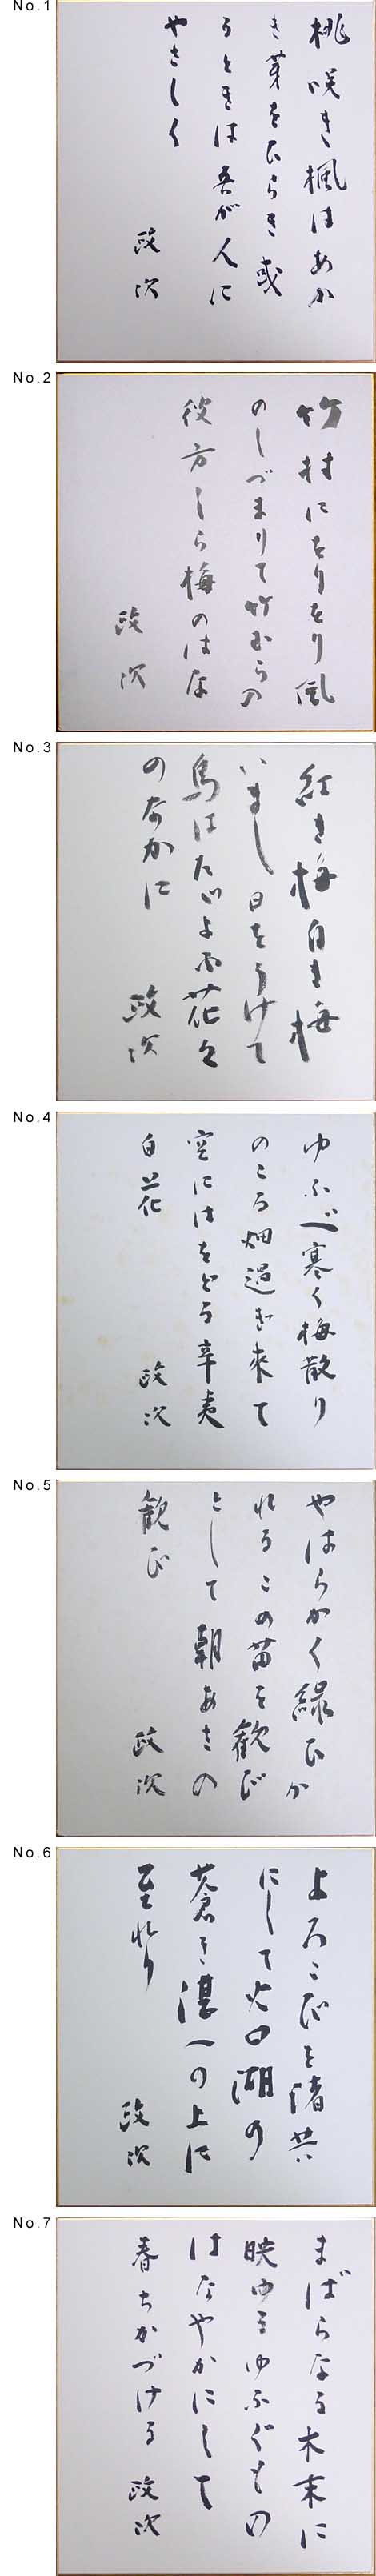 No.1
桃咲き楓はあか
き芽をひらき或
るときは吾が人に
やさしく
政次
No.2
竹村にをりをり風
のしづまりて竹むらの
彼方しら梅のはな
政次
No.3
紅き梅白き梅
いまし日をうけて
鳥はたゞよふ花々
のなかに
政次
No.4
ゆふべ寒く梅散り
のころ畑過ぎ来て
空にはをどる辛夷
白花
政次
No.5
やはらかく緑ひか
れるこの苗を歓び
として朝あさの
歓び
政次
No.6
よろこびを諸共
にして火口湖の
蒼き湛への上に
至れり
政次
No.7
まばらなる木末に
映ゆるゆふぐもの
はなやかにして
春ちかづける
政次